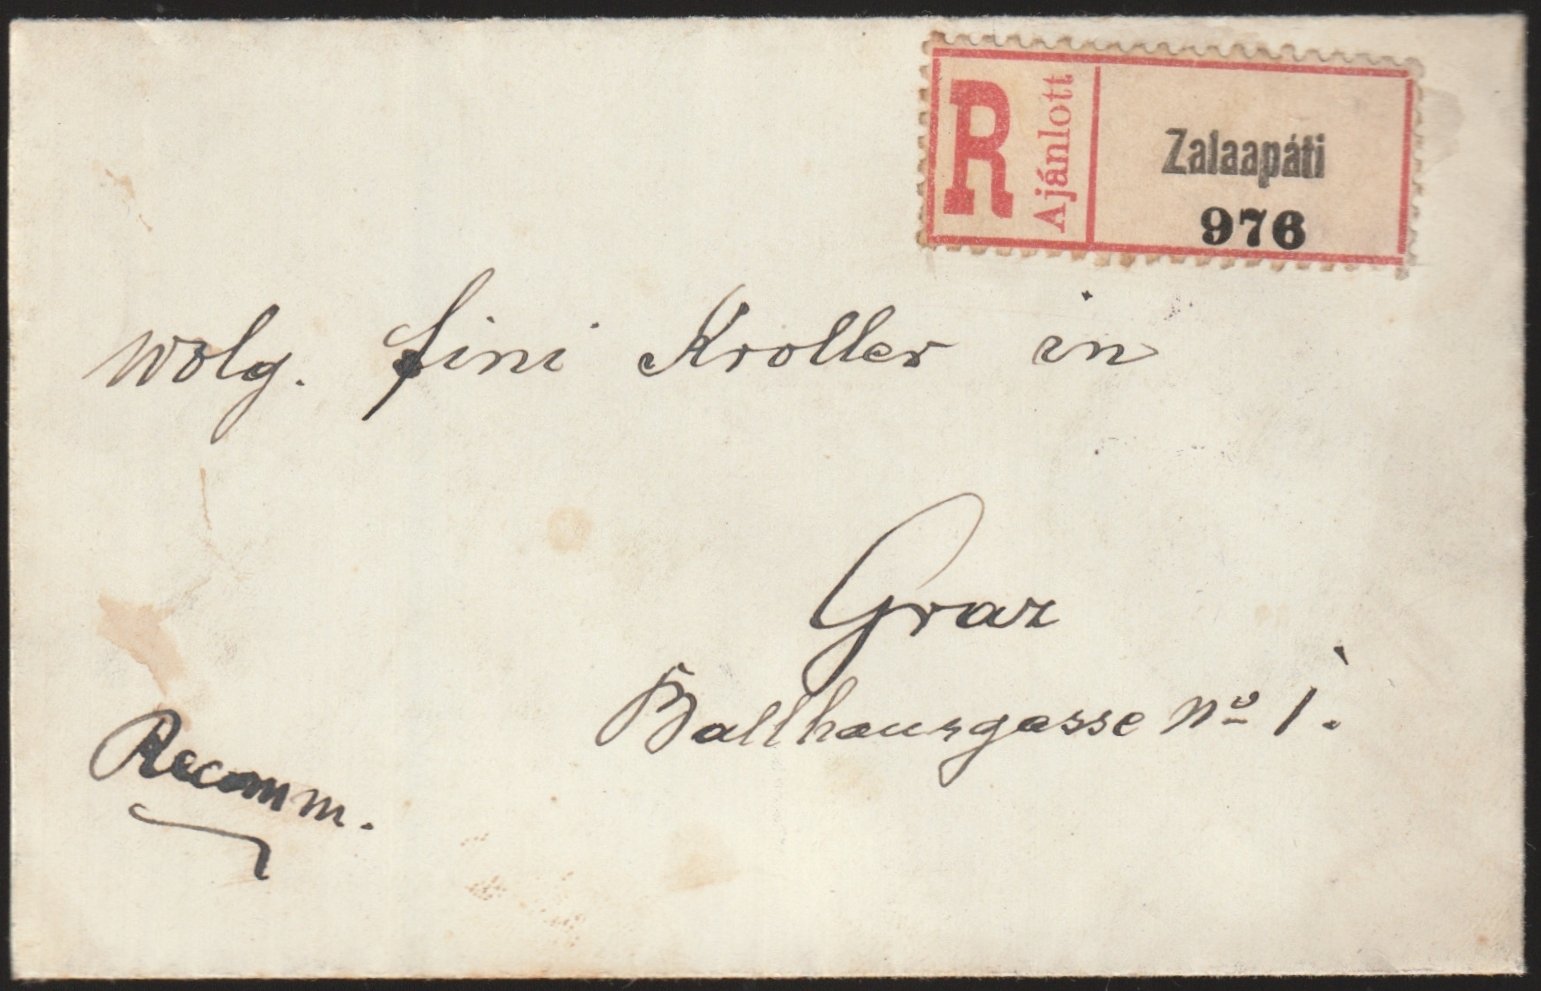 R Ajánlott
Zalaapáti
976
Wolg. Fini Kroller in
Graz
Ballhausgasse No 1.
Recomm.